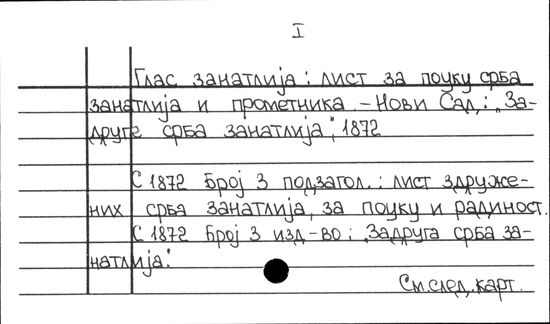 I
Глас занатлија : лист за поуку срба
занатлија и прометника. – Нови Сад, : „За-
друге срба занатлија“, 1872
С 1872 Број 3 подзагол. : лист здруже-
них срба занатлија, за поуку и радиност.
С 1872 Број 3 изд-во : „Задруга срба за-
натлија.“
См. след. карт.